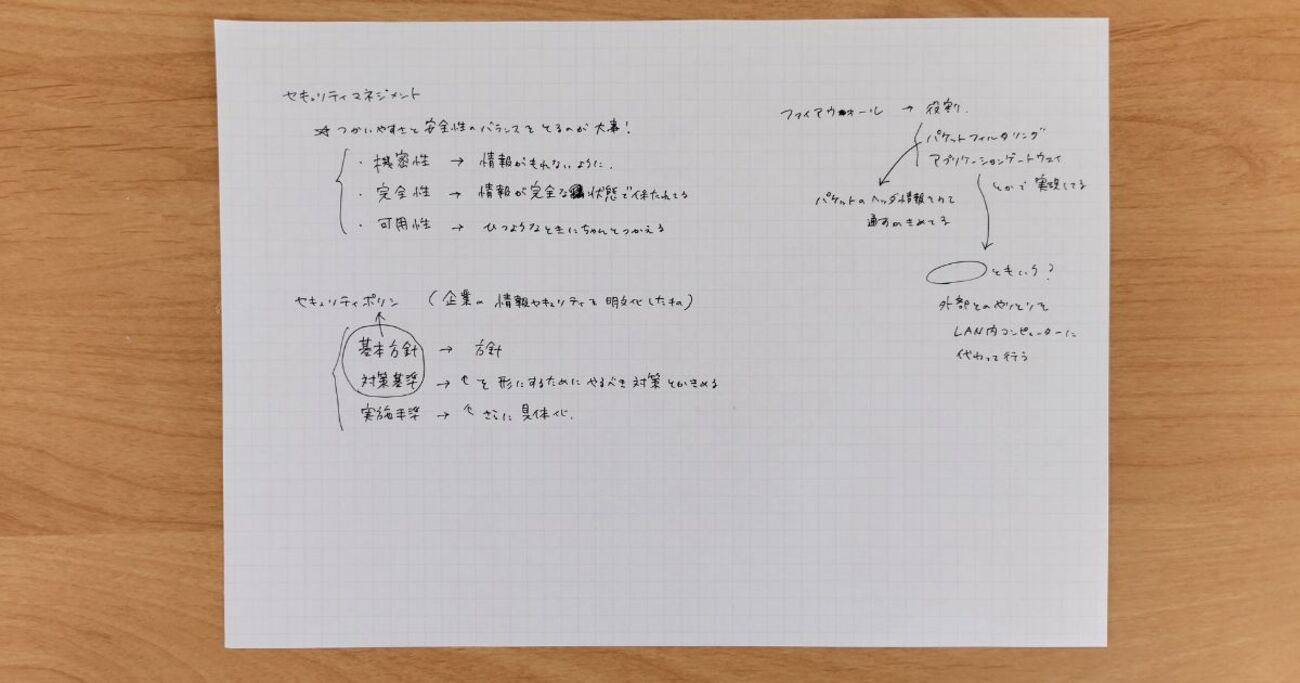 セキュリティマネジメント
☆つかいやすさと安全性のバランスをとるのが大事!
・機密性 → 情報がもれないように.
・完全性 → 情報が完全な状態で保たれてる
・可用性 → ひつようなときにちゃんとつかえる
セキュリティポリシー (企業の情報セキュリティを明文化したもの)
基本方針 → 方針
対策基準 → ↑を形にするためにやるべき対策とかきめる
実施手準 → ↑さらに具体化.
ファイアウォール → 役割.
パケットフィルタリング
アプリケーションゲートウェイ
とかで実現してる
パケットのヘッダ情報をみて
通すかきめてる
ともいう?
外部とのやりとりを
LAN内コンピューターに
代わって行う